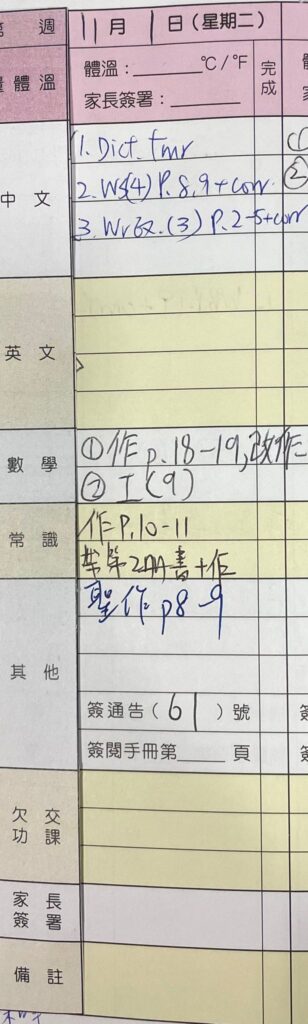 週 11月1日(星期二)
體溫:____°C/°F 完成
體溫
家長簽署:____
中文
1. Dict. tmr
2. WS(4) P.8,9+corr.
3. WrEx.(3) P.2-5+corr
英文
數學
①作p.18-19,改作
②工(9)
常識
作P.10-11
帶第2冊書+作
其他
聖作p8-9
簽通告(61)號
簽閱手冊第____頁
欠交功課
家長簽署
備註